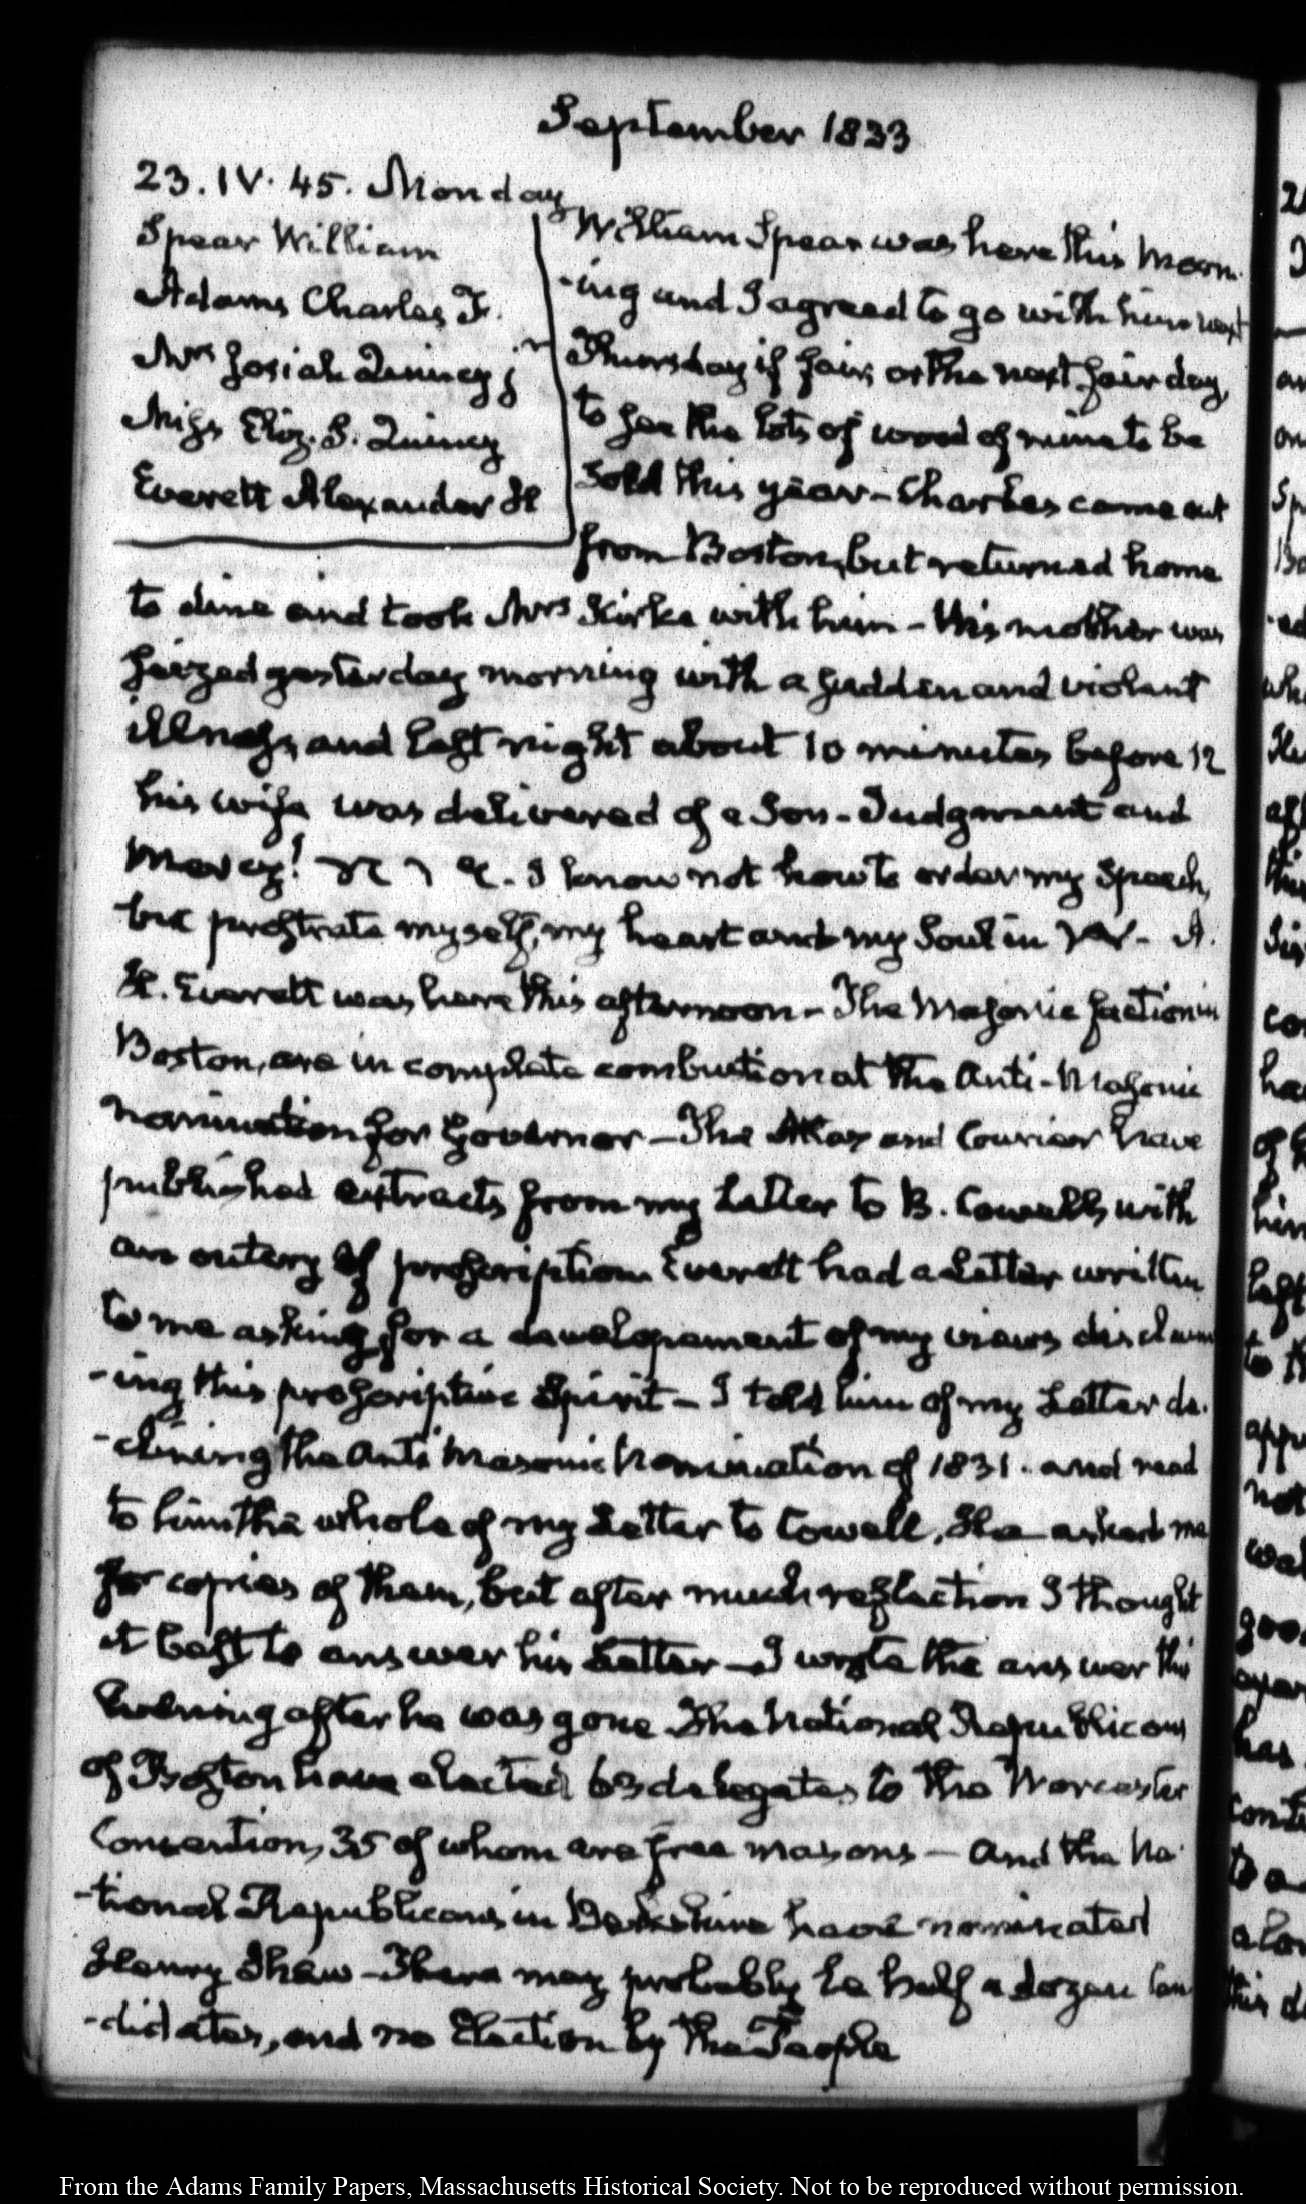 September 1833
23. IV. 45. Monday
Spear William
Adams Charles F.
Mrs Josiah Quincy j
Miss Eliz. S. Quincy
Everett Alexander H
William Spear was here this Morn-
-ing and I agreed to go with him next
Thursday if fair, or the next fair day,
to see the lots of wood of mine to be
sold this year – Charles came out
from Boston, but returned home
to dine and took Mrs Kirke with him – His mother was
seized yesterday morning with a sudden and violent
illness, and last night about 10 minutes before 12
his wife was delivered of a Son – Judgment and
Mercy! I know not how to order my Speech,
but prostrate myself, my heart and my Soul in A.
H. Everett was here this afternoon – The Masonic faction in
Boston, are in complete combustion at the Anti-Masonic
nomination for Governor – The Atlas and Courier have
published extracts from my Letter to B. Cowell, with
an outcry of proscription. Everett had a Letter written
to me asking for a developement of my views disclaim
-ing this proscriptive Spirit – I told him of my Letter de-
-clining the Anti Masonic Nomination of 1831. and read
to him the whole of my Letter to Cowell. He asked me
for copies of them, but after much reflection I thought
it best to answer his Letter – I wrote the answer this
Evening after he was gone The National Republicans
of Boston have elected 63 delegates to the Worcester
Convention, 35 of whom are free masons – And the Na-
-tional Republicans in Berkshire have nominated
Henry Shaw – There may probably be half a dozen Can
-didates, and no Election by the People
From the Adams Family Papers, Massachusetts Historical Society. Not to be reproduced without permission.